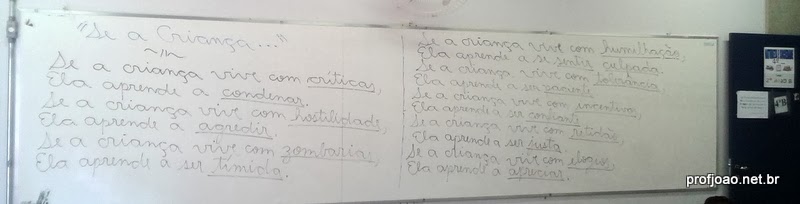 "Se a Criança..."
Se a criança vive com críticas,
Ela aprende a condenar.
Se a criança vive com hostilidade,
Ela aprende a agredir.
Se a criança vive com zombarias,
Ela aprende a ser tímida.
Se a criança vive com humilhação,
Ela aprende a se sentir culpada.
Se a criança vive com tolerância,
Ela aprende a ser paciente.
Se a criança vive com incentivo,
Ela aprende a ser confiante.
Se a criança vive com retidão,
Ela aprende a ser justa.
Se a criança vive com elogios,
Ela aprende a apreciar.
profjoao.net.br